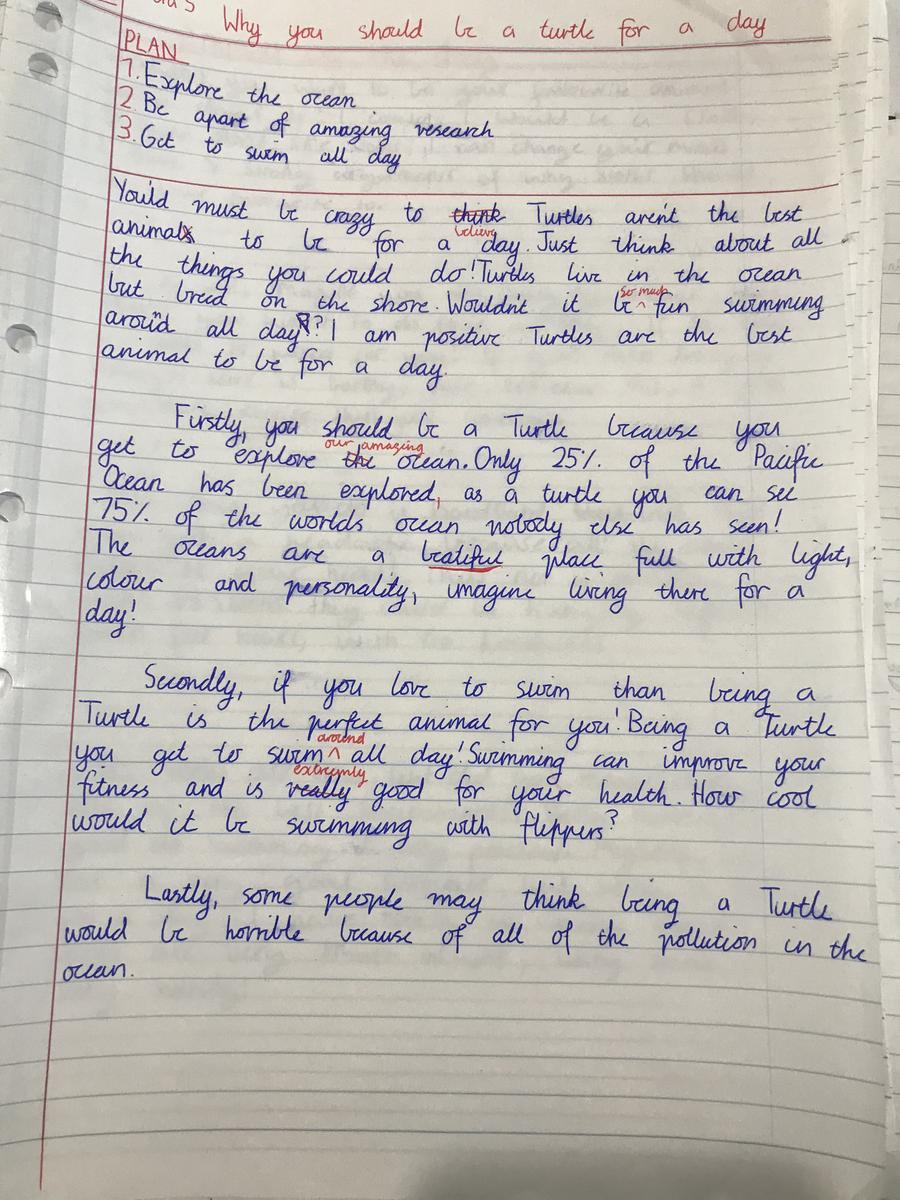 Why you should be a turtle for a day
PLAN
1. Explore the ocean
2. Be apart of amazing research
3. Get to swim all day
You'd must be crazy to think Turtles aren't the best
believe
animals to be for a day. Just think about all
the things you could do! Turtles live in the ocean
but breed on the shore. Wouldn't it be ^ fun swimming
so much
around all day? I am positive Turtles are the best
animal to be for a day.
Firstly, you should be a Turtle because you
our amazing
get to explore the ocean. Only 25% of the Pacific
Ocean has been explored, as a turtle you can see
75% of the worlds ocean nobody else has seen!
The oceans are a beatiful place full with light,
colour and personality, imagine living there for a
day!
Secondly, if you love to swim than being a
Turtle is the perfect animal for you! Being a Turtle
around
you get to swim ^ all day! Swimming can improve your
extreemly
fitness and is really good for your health. How cool
would it be swimming with flippers?
Lastly, some people may think being a Turtle
would be horrible because of all of the pollution in the
ocean.